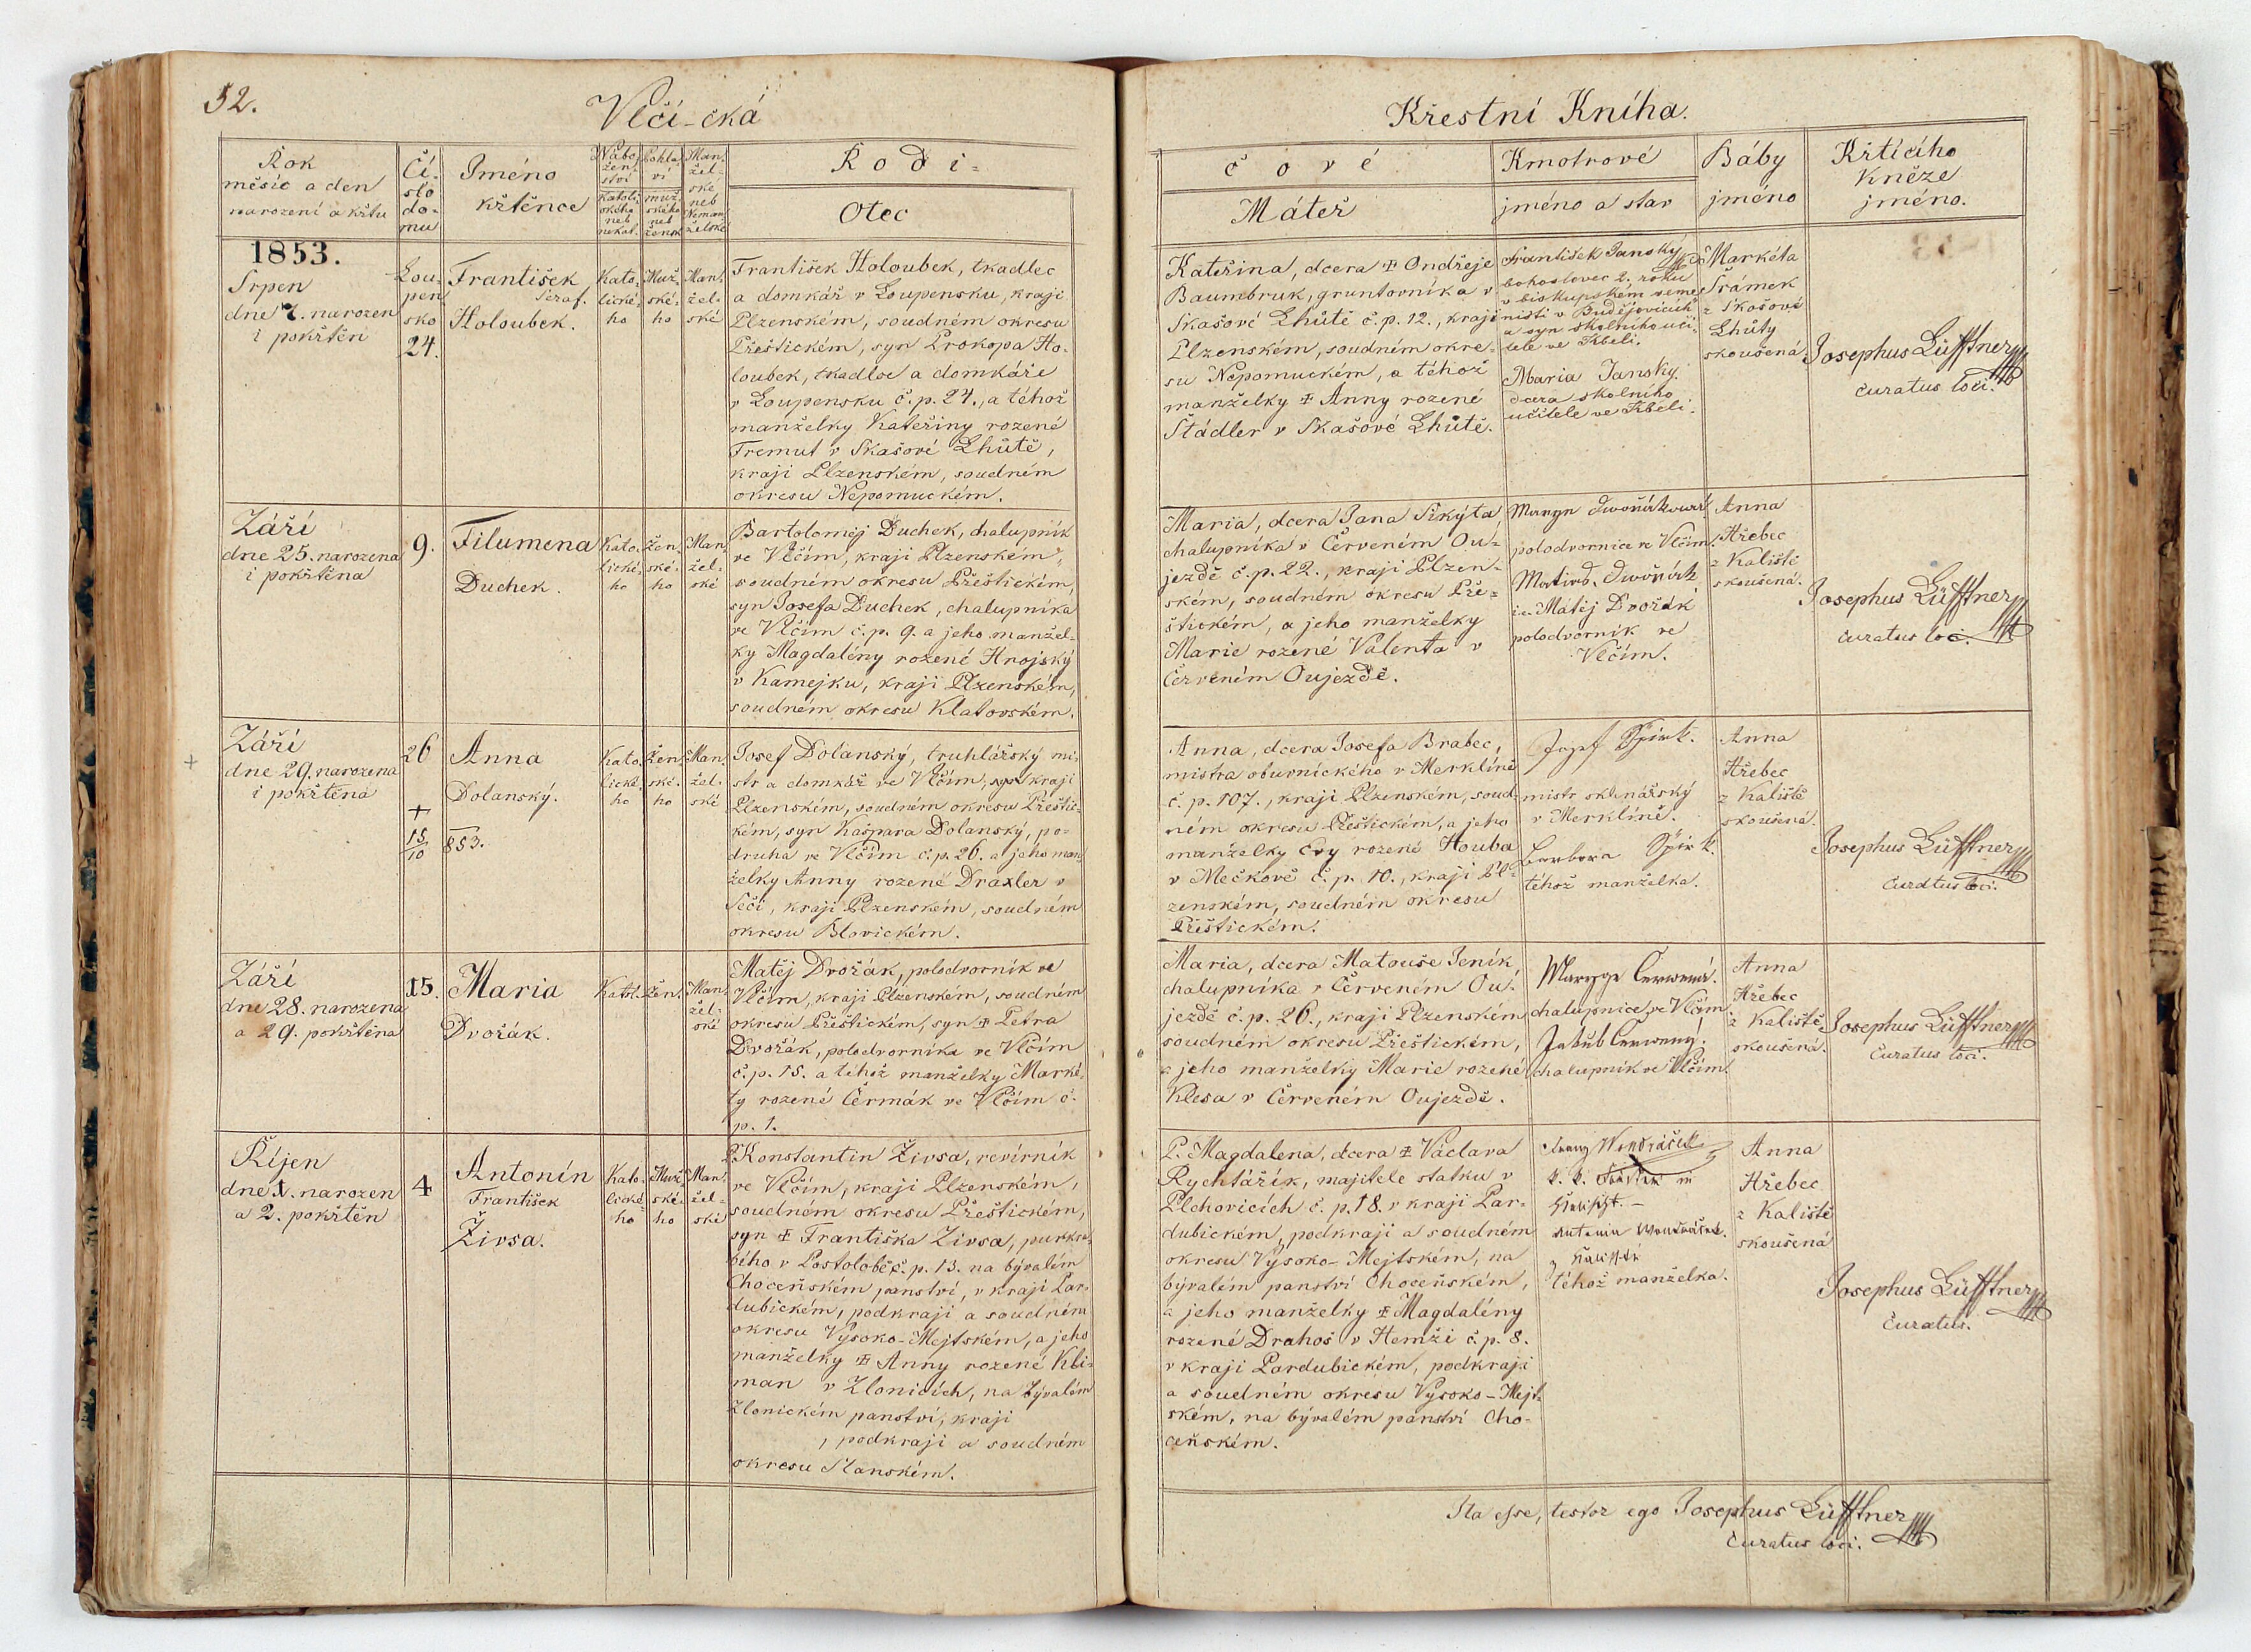 52.
Vlčí-cká
Křestní Kniha.
Rok
měsíc a den
narození a křtu
Čí-
slo
do-
mu
Jméno
křtěnce
Nábo-
žen-
ství
katoli-
ckého
neb
nekat.
Pohla-
ví
muž-
ského
neb
žensk.
Man-
žel-
ské
neb
Neman-
želské
Rodi-
Otec
čové
Máteř
Kmotrové
jméno a stav
Báby
jméno
Křtícího
Kněze
jméno.
1853.
Srpen
dne 7. narozen
i pokřtěn
Lou-
pen
sko
24.
František
Seraf.
Holoubek.
Kato-
lické-
ho
Muž-
ské-
ho
Man-
žel-
ské
František Holoubek, tkadlec
a domkář v Loupensku, kraji
Plzenském, soudném okresu
Přeštickém, syn Prokopa Ho-
loubek, tkadlce a domkáře
v Loupensku č. p. 24., a téhož
manželky Kateřiny rozené
Tremul v Skašové Lhůtě,
kraji Plzenském, soudném
okresu Nepomuckém.
Kateřina, dcera ‡ Ondřeje
Baumbruk, gruntovníka v
Skašové Lhůtě č. p. 12., kraji
Plzenském, soudném okre-
su Nepomuckém, a téhož
manželky ‡ Anny rozené
Štádler v Skašové Lhůtě.
František Janský
bohoslovec 2. roku
v biskupském seme-
ništi v Budějovicích
a syn školního uči-
tele ve Kbeli.
Maria Janský.
dcera školního
učitele ve Kbeli.
Markéta
Šrámek
z Skašové
Lhůty
skoušená.
Josephus Lüfftner
curatus loci.
Září
dne 25. narozena
i pokřtěna
9.
Filumena
Duchek.
Kato-
lické-
ho
Žen-
ské-
ho
Man-
žel-
ské
Bartoloměj Duchek, chalupník
ve Vlčím, kraji Plzenském,
soudném okresu Přeštickém,
syn Josefa Duchek, chalupníka
ve Vlčím č. p. 9. a jeho manžel-
ky Magdalény rozené Hnojský
v Kamejku, kraji Plzenském,
soudném okresu Klatovském.
Maria, dcera Jana Sikýta,
chalupníka v Červeném Ou-
jezdě č. p. 22., kraji Plzen-
ském, soudném okresu Pře-
štickém, a jeho manželky
Marie rozené Valenta v
Červeném Oujezdě.
polodvornice ve Vlčím.
i. e. Matěj Dvořák
polodvorník ve
Vlčím.
Anna
Hřebec
z Kaliště
skoušená.
Josephus Lüfftner
curatus loci.
Září
dne 29. narozena
i pokřtěna
26
+
15
10
853.
Anna
Dolanský.
Kato-
lické-
ho
Žen-
ské-
ho
Man-
žel-
ské
Josef Dolanský, truhlářský mi-
str a domkář ve Vlčím, kraji
Plzenském, soudném okresu Přešti-
ckém, syn Kašpara Dolanský, po-
druha ve Vlčím č. p. 26. a jeho man-
želky Anny rozené Draxler v
Sečí, kraji Plzenském, soudném
okresu Blovickém.
Anna, dcera Josefa Brabec,
mistra obuvnického v Merklíně
č. p. 107., kraji Plzenském, soud-
ném okresu Přeštickém, a jeho
manželky Evy rozené Houba
v Mečkově č. p. 10., kraji Pl-
zenském, soudném okresu
Přeštickém.
Jozef Špirk.
mistr sklenářský
v Merklíně.
Barbora Špirk.
téhož manželka.
Anna
Hřebec
z Kaliště
skoušená.
Josephus Lüfftner
curatus loci.
Září
dne 28. narozena
a 29. pokřtěna
15.
Maria
Dvořák.
Katol.
Žen.
Man-
žel-
ské
Matěj Dvořák, polodvorník ve
Vlčím, kraji Plzenském, soudném
okresu Přeštickém, syn ‡ Petra
Dvořák, polodvorníka ve Vlčím
č. p. 15. a téhož manželky Marké-
ty rozené Čermák ve Vlčím č.
p. 1.
Maria, dcera Matouše Jeník
chalupníka v Červeném Ou-
jezdě č. p. 26., kraji Plzenském
soudném okresu Přeštickém,
a jeho manželky Marie rozené
Klesa v Červeném Oujezdě.
chalupnice ve Vlčím.
chalupník ve Vlčím.
Anna
Hřebec
z Kaliště
skoušená.
Josephus Lüfftner
curatus loci.
Říjen
dne 1. narozen
a 2. pokřtěn
4
Antonín
František
Živsa.
Kato-
lické-
ho
Muž-
ské-
ho
Man-
žel-
ské
P. Konstantin Živsa, revírník
ve Vlčím, kraji Plzenském,
soudném okresu Přeštickém,
syn ‡ Františka Živsa, purkra-
bího v Postolobě č. p. 13. na bývalém
Choceňském panství, v kraji Par-
dubickém, podkraji a soudném
okresu Vysoko-Mejtském, a jeho
manželky ‡ Anny rozené Kli-
man v Zlonicích, na bývalém
Zlonickém panství, kraji
, podkraji a soudném
okresu Slanském.
P. Magdalena, dcera ‡ Václava
Rychtářík, majitele statku v
Plchovicích č. p. 18. v kraji Par-
dubickém, podkraji a soudném
okresu Vysoko-Mejtském, na
bývalém panství Choceňském,
a jeho manželky ‡ Magdalény
rozené Drahoš v Hemži č. p. 8.
v kraji Pardubickém, podkraji
a soudném okresu Vysoko-Mejt-
ském, na bývalém panství Cho-
ceňském.
téhož manželka.
Anna
Hřebec
z Kaliště
skoušená
Josephus Lüfftner
curatus.
Ita esse, testor ego Josephus Lüfftner
curatus loci.